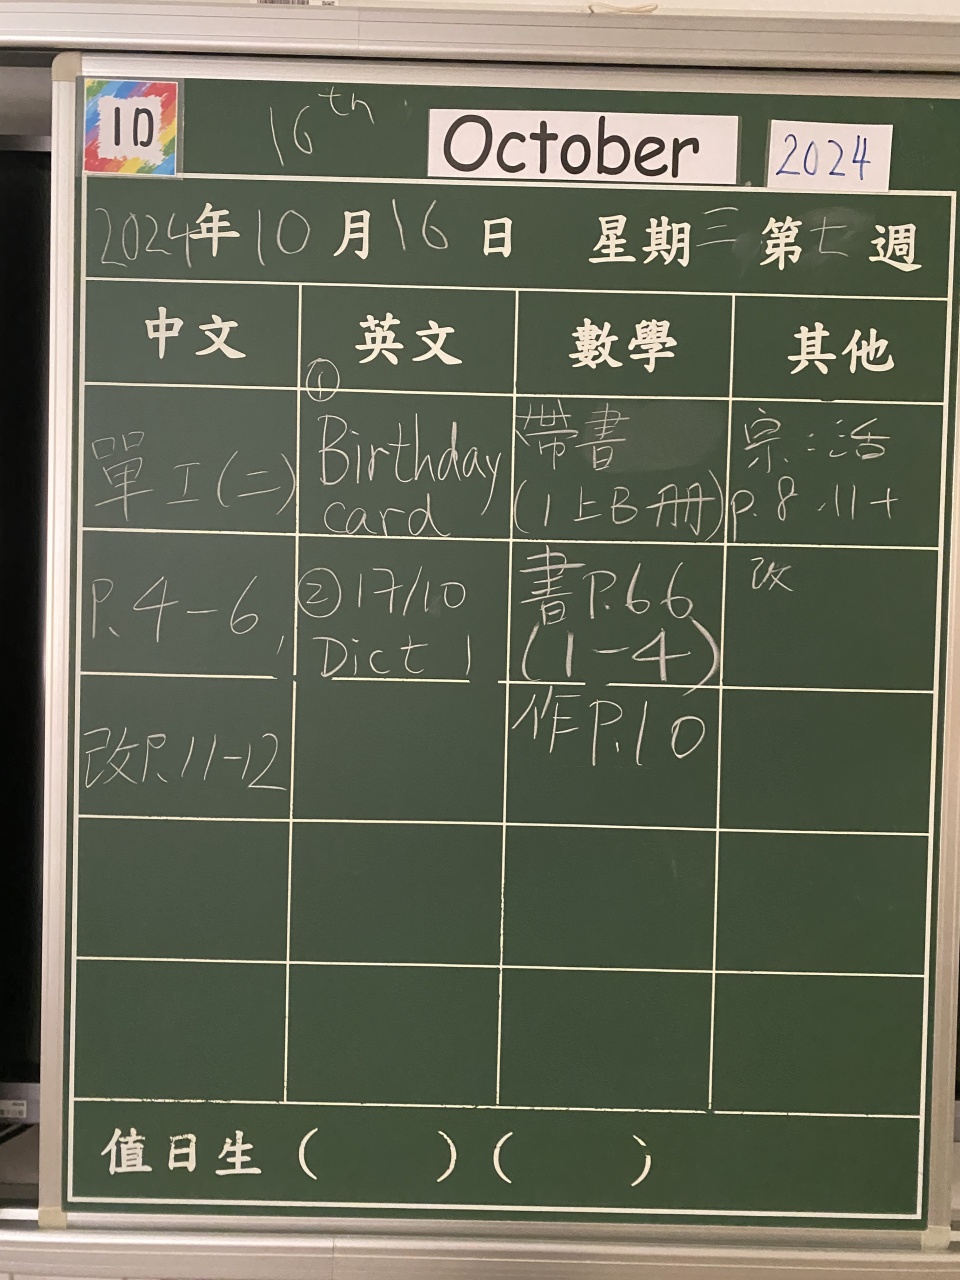 1D
16th October 2024
2024年10月16日 星期三 第七週
中文 英文 數學 其他
單工(二)
P.4-6,
改P.11-12
① Birthday
card
② 17/10
Dict 1
帶書
(1上B冊)
書P.66
(1-4)
作P.10
宗:活
p.8,11+
改
值日生 ( ) ( )